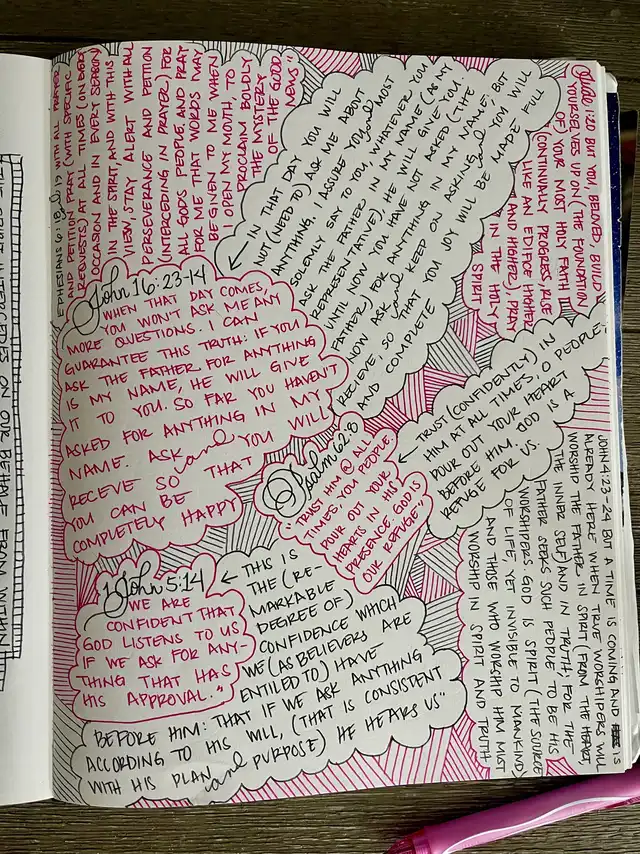 EPHESIANS 6:18 and 19 WITH ALL PRAYER
AND PETITION PRAY (WITH SPECIFIC
REQUESTS) AT ALL TIMES (ON EVERY
OCCASION AND IN EVERY SEASON)
IN THE SPIRIT, AND WITH THIS IN
VIEW, STAY ALERT WITH ALL
PERSEVERANCE AND PETITION
(INTERCEDING IN PRAYER) FOR
ALL GOD'S PEOPLE, AND PRAY
FOR ME THAT WORDS MAY
BE GIVEN TO ME WHEN
I OPEN MY MOUTH, TO
PROCLAIM BOLDLY
THE MYSTERY
OF THE GOOD
NEWS"
John 16:23-14
WHEN THAT DAY COMES,
YOU WON'T ASK ME ANY
MORE QUESTIONS. I CAN
GUARANTEE THIS TRUTH: IF YOU
ASK THE FATHER FOR ANYTHING
IS MY NAME, HE WILL GIVE
IT TO YOU. SO FAR YOU HAVEN'T
ASKED FOR ANYTHING IN MY
NAME. ASK and YOU WILL
RECEVE SO THAT
YOU CAN BE
COMPLETELY HAPPY
← IN THAT DAY YOU WILL
NOT (NEED TO) ASK ME ABOUT
ANYTHING. I ASSURE YOU and MOST
SOLEMNLY SAY TO YOU, WHATEVER YOU
ASK THE FATHER IN MY NAME (AS MY
REPRESENTATIVE), HE WILL GIVE YOU.
UNTIL NOW YOU HAVE NOT ASKED (THE
FATHER) FOR ANYTHING IN MY NAME; BUT
NOW ASK and KEEP ON ASKING and YOU WILL
RECIEVE, SO THAT YOU JOY WILL BE MADE FULL
AND COMPLETE
Jude 1:20 BUT YOU, BELOVED, BUILD
YOURSELVES UP ON (THE FOUNDATION
OF) YOUR MOST HOLY FAITH
(CONTINUALLY PROGRESS, RISE
LIKE AN EDIFICE HIGHER
AND HIGHER), PRAY
IN THE HOLY
SPIRIT
Psalm 62:8
"TRUST HIM @ ALL
TIMES, YOU PEOPLE.
POUR OUT YOUR
HEARTS IN HIS
PRESENCE. GOD IS
OUR REFUGE"
← TRUST (CONFIDENTLY) IN
HIM AT ALL TIMES, O PEOPLE;
POUR OUT YOUR HEART
BEFORE HIM. GOD IS A
REFUGE FOR US.
JOHN 4:23-24 BUT A TIME IS COMING AND IS
ALREADY HERE WHEN TRUE WORSHIPERS WILL
WORSHIP THE FATHER IN SPIRIT (FROM THE HEART,
THE INNER SELF) AND IN TRUTH; FOR THE
FATHER SEEKS SUCH PEOPLE TO BE HIS
WORSHIPERS. GOD IS SPIRIT (THE SOURCE
OF LIFE, YET INVISIBLE TO MANKIND)
AND THOSE WHO WORSHIP HIM MUST
WORSHIP IN SPIRIT AND TRUTH
1 John 5:14
WE ARE
CONFIDENT THAT
GOD LISTENS TO US
IF WE ASK FOR ANY-
THING THAT HAS
HIS APPROVAL."
← THIS IS
THE (RE-
MARKABLE
DEGREE OF)
CONFIDENCE WHICH
WE (AS BELIEVERS ARE
ENTILED TO) HAVE
BEFORE HIM: THAT IF WE ASK ANYTHING
ACCORDING TO HIS WILL, (THAT IS CONSISTENT
WITH HIS PLAN and PURPOSE) HE HEARS US"
INTERCEDES ON OUR BEHALF FROM WITHIN